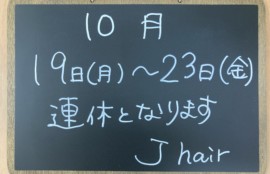 10月
19日(月)～23日(金)
連休となります
J hair